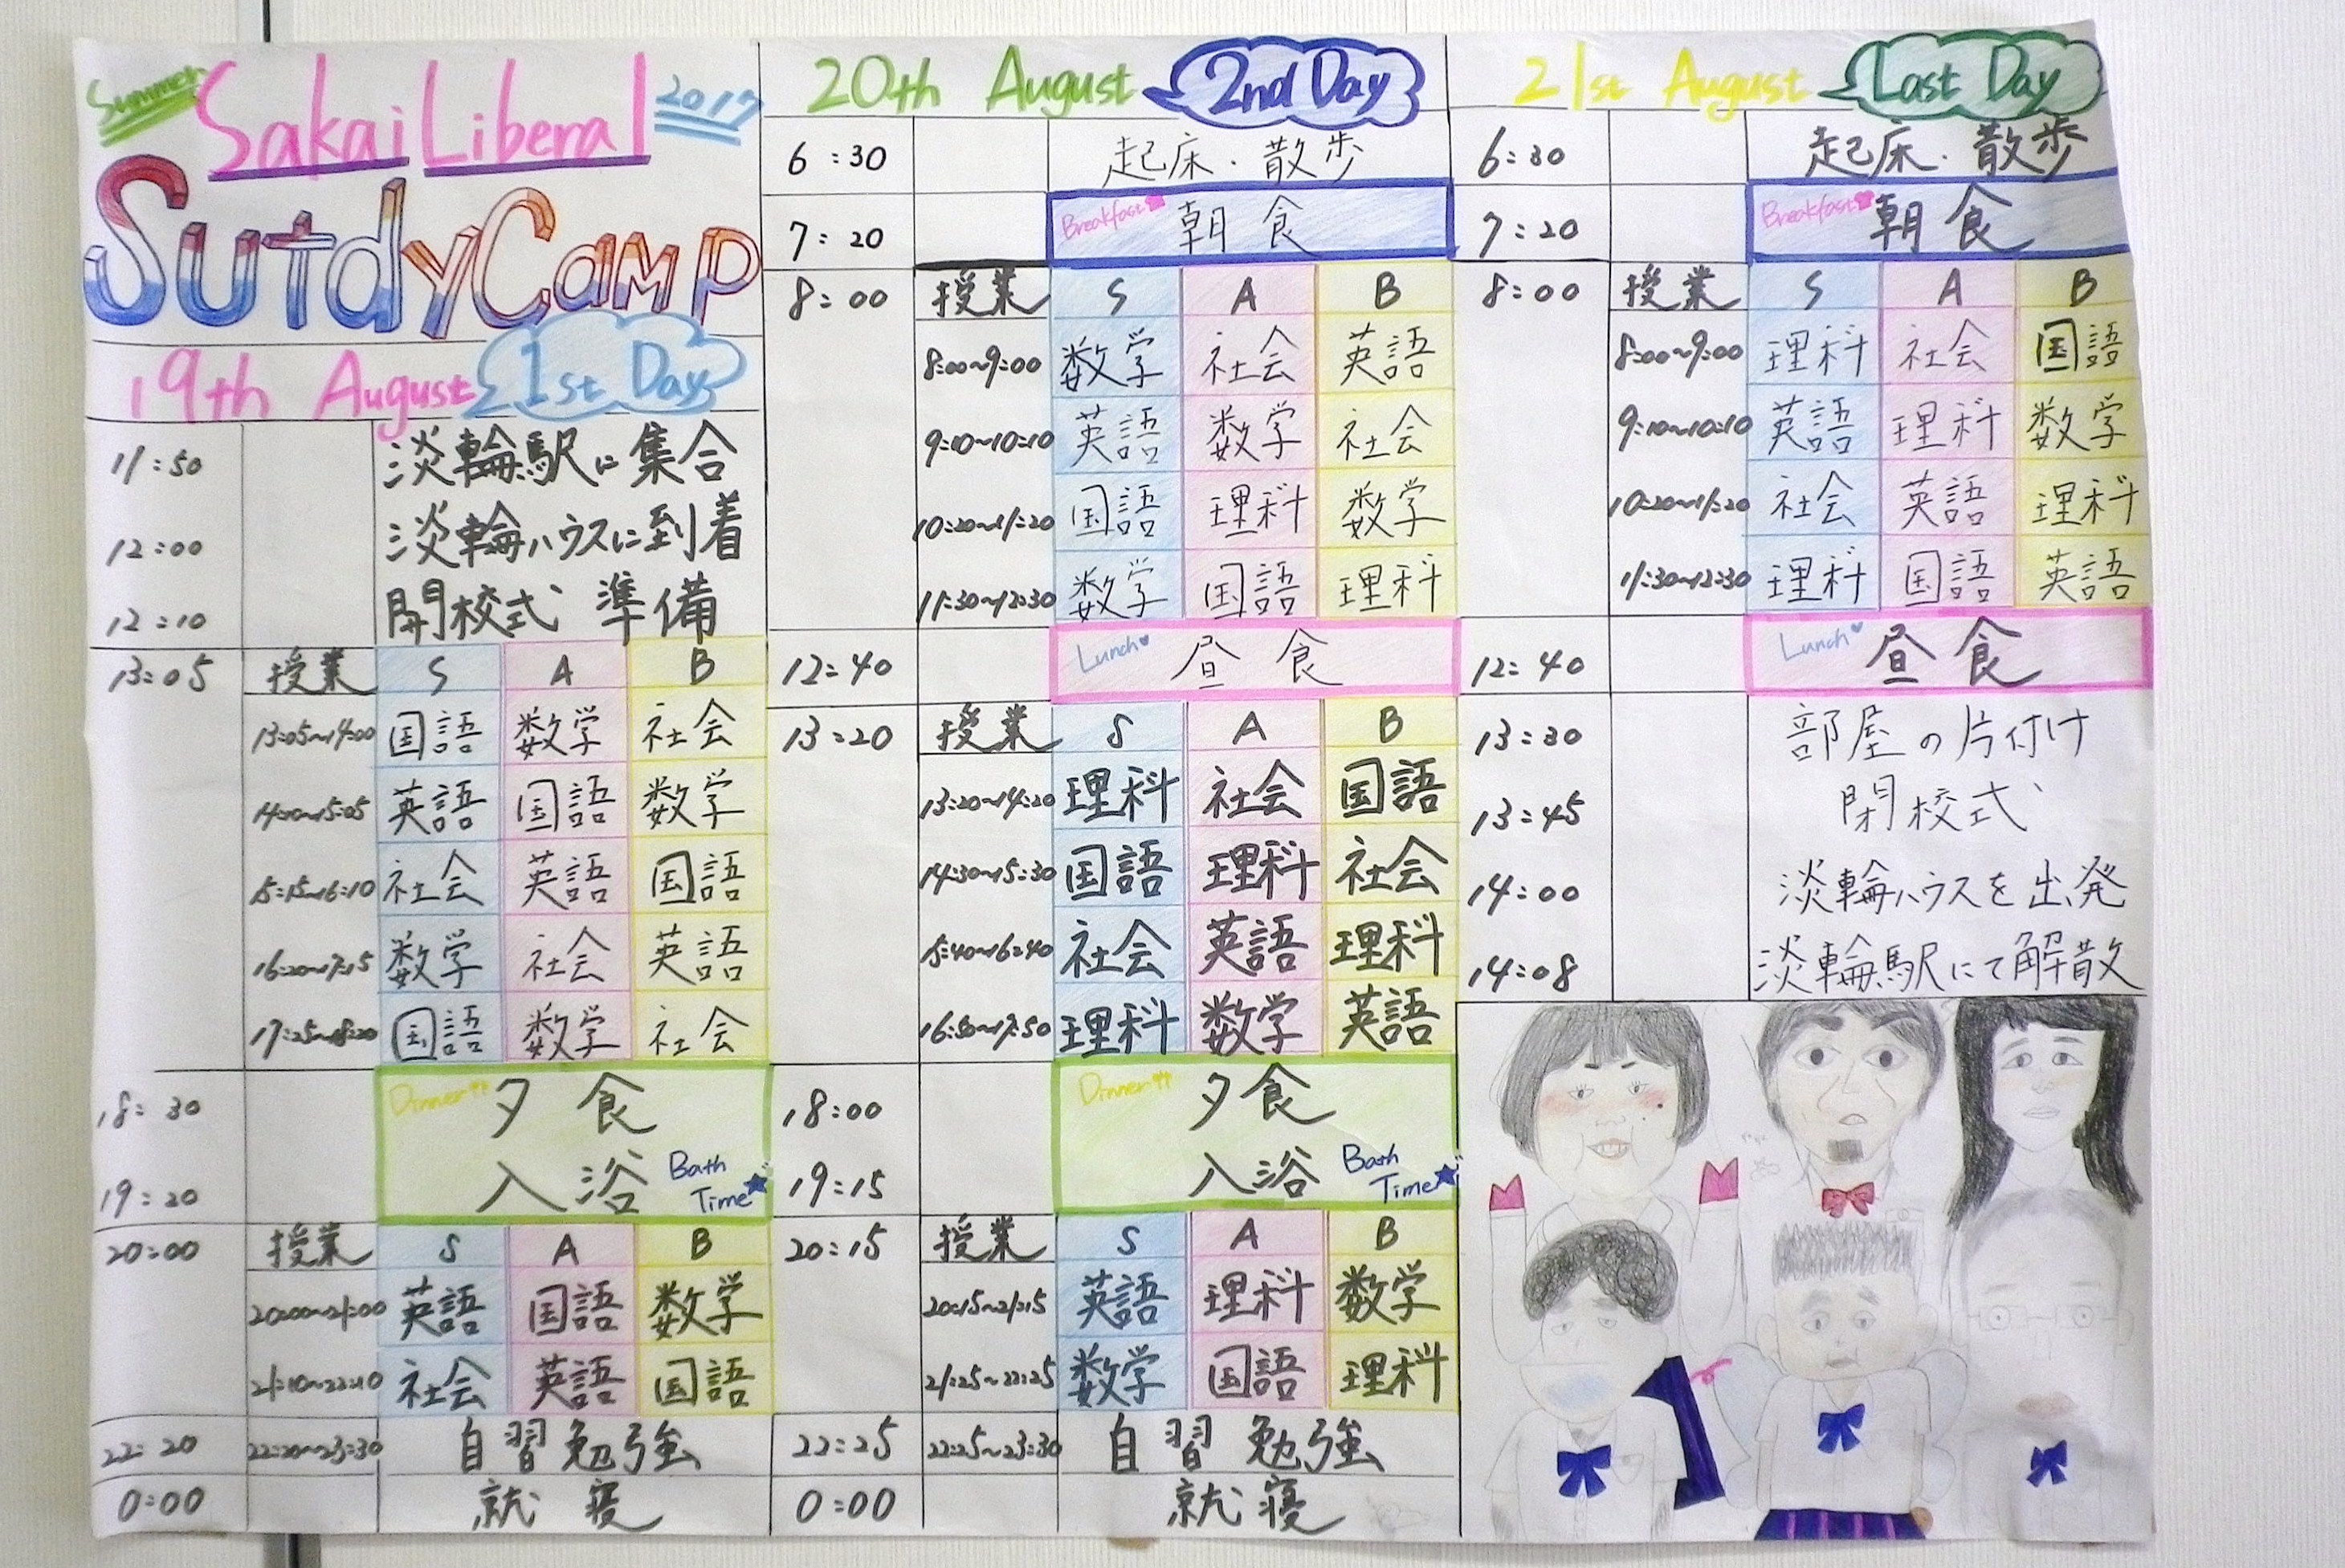 Summer
Sakai Liberal 2017
SutdyCamp
19th August 1st Day
11:50 淡輪駅に集合
12:00 淡輪ハウスに到着
12:10 開校式 準備
13:05 授業 S A B
13:05~14:00 国語 数学 社会
14:10~15:05 英語 国語 数学
15:15~16:10 社会 英語 国語
16:20~17:15 数学 社会 英語
17:25~18:20 国語 数学 社会
18:30 Dinner 夕食
19:20 入浴 Bath Time
20:00 授業 S A B
20:00~21:00 英語 国語 数学
21:10~22:10 社会 英語 国語
22:20 22:20~23:30 自習勉強
0:00 就寝
20th August 2nd Day
6:30 起床・散歩
7:20 Breakfast 朝食
8:00 授業 S A B
8:00~9:00 数学 社会 英語
9:10~10:10 英語 数学 社会
10:20~11:20 国語 理科 数学
11:30~12:30 数学 国語 理科
12:40 Lunch 昼食
13:20 授業 S A B
13:20~14:20 理科 社会 国語
14:30~15:30 国語 理科 社会
15:40~16:40 社会 英語 理科
16:50~17:50 理科 数学 英語
18:00 Dinner 夕食
19:15 入浴 Bath Time
20:15 授業 S A B
20:15~21:15 英語 理科 数学
21:25~22:25 数学 国語 理科
22:25 22:25~23:30 自習勉強
0:00 就寝
21st August Last Day
6:30 起床・散歩
7:20 Breakfast 朝食
8:00 授業 S A B
8:00~9:00 理科 社会 国語
9:10~10:10 英語 理科 数学
10:20~11:20 社会 英語 理科
11:30~12:30 理科 国語 英語
12:40 Lunch 昼食
13:30 部屋の片付け
13:45 閉校式
14:00 淡輪ハウスを出発
14:08 淡輪駅にて解散